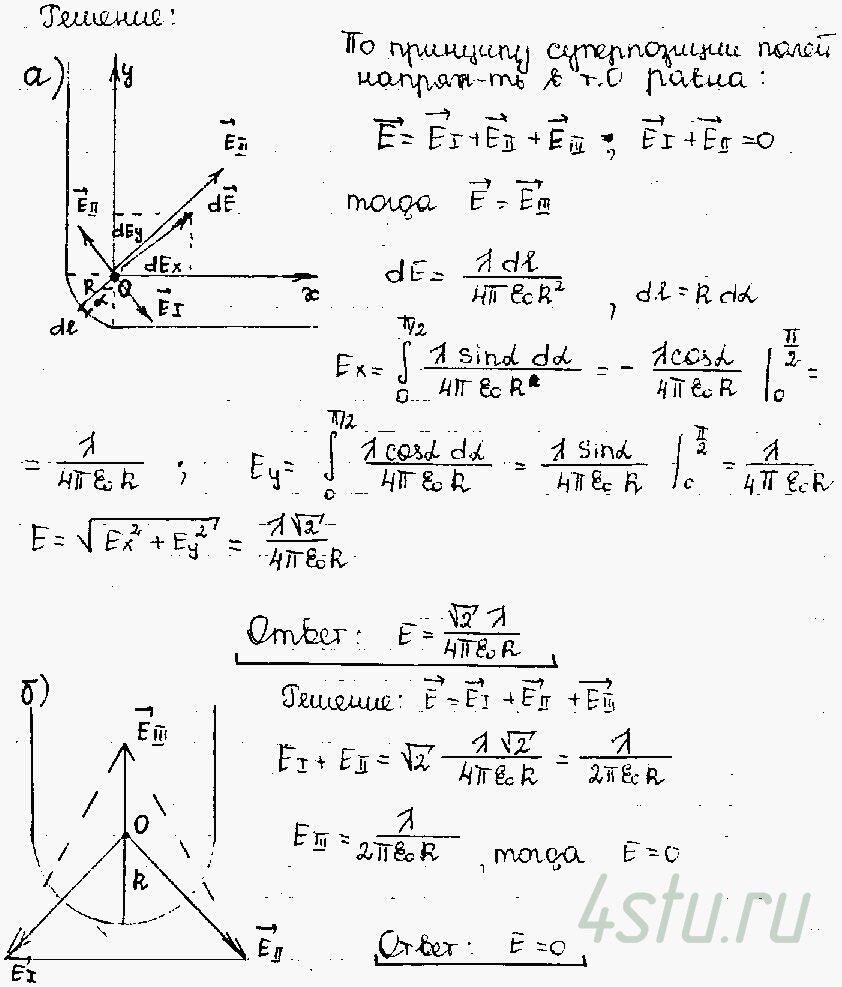 Решение:
а)
y
E⃗III
dE⃗
E⃗II
dEy
dEx
R
O
x
α
E⃗I
dl
По принципу суперпозиции полей
напряж-ть в т.О равна:
E⃗ = E⃗I + E⃗II + E⃗III ; E⃗I + E⃗II = 0
тогда E⃗ = E⃗III
dE = λ dl / 4π ε₀ R² , dl = R dα
Ex = ∫₀^(π/2) λ sinα dα / 4π ε₀ R = - λ cosα / 4π ε₀ R |₀^(π/2) =
= λ / 4π ε₀ R ; Ey = ∫₀^(π/2) λ cosα dα / 4π ε₀ R = λ sinα / 4π ε₀ R |₀^(π/2) = λ / 4π ε₀ R
E = √(Ex² + Ey²) = λ√2 / 4π ε₀ R
Ответ: E = √2 λ / 4π ε₀ R
б)
E⃗III
O
R
E⃗I
E⃗II
Решение: E⃗ = E⃗I + E⃗II + E⃗III
EI + EII = √2 λ√2 / 4π ε₀ R = λ / 2π ε₀ R
EIII = λ / 2π ε₀ R , тогда E = 0
Ответ: E = 0
4stu.ru